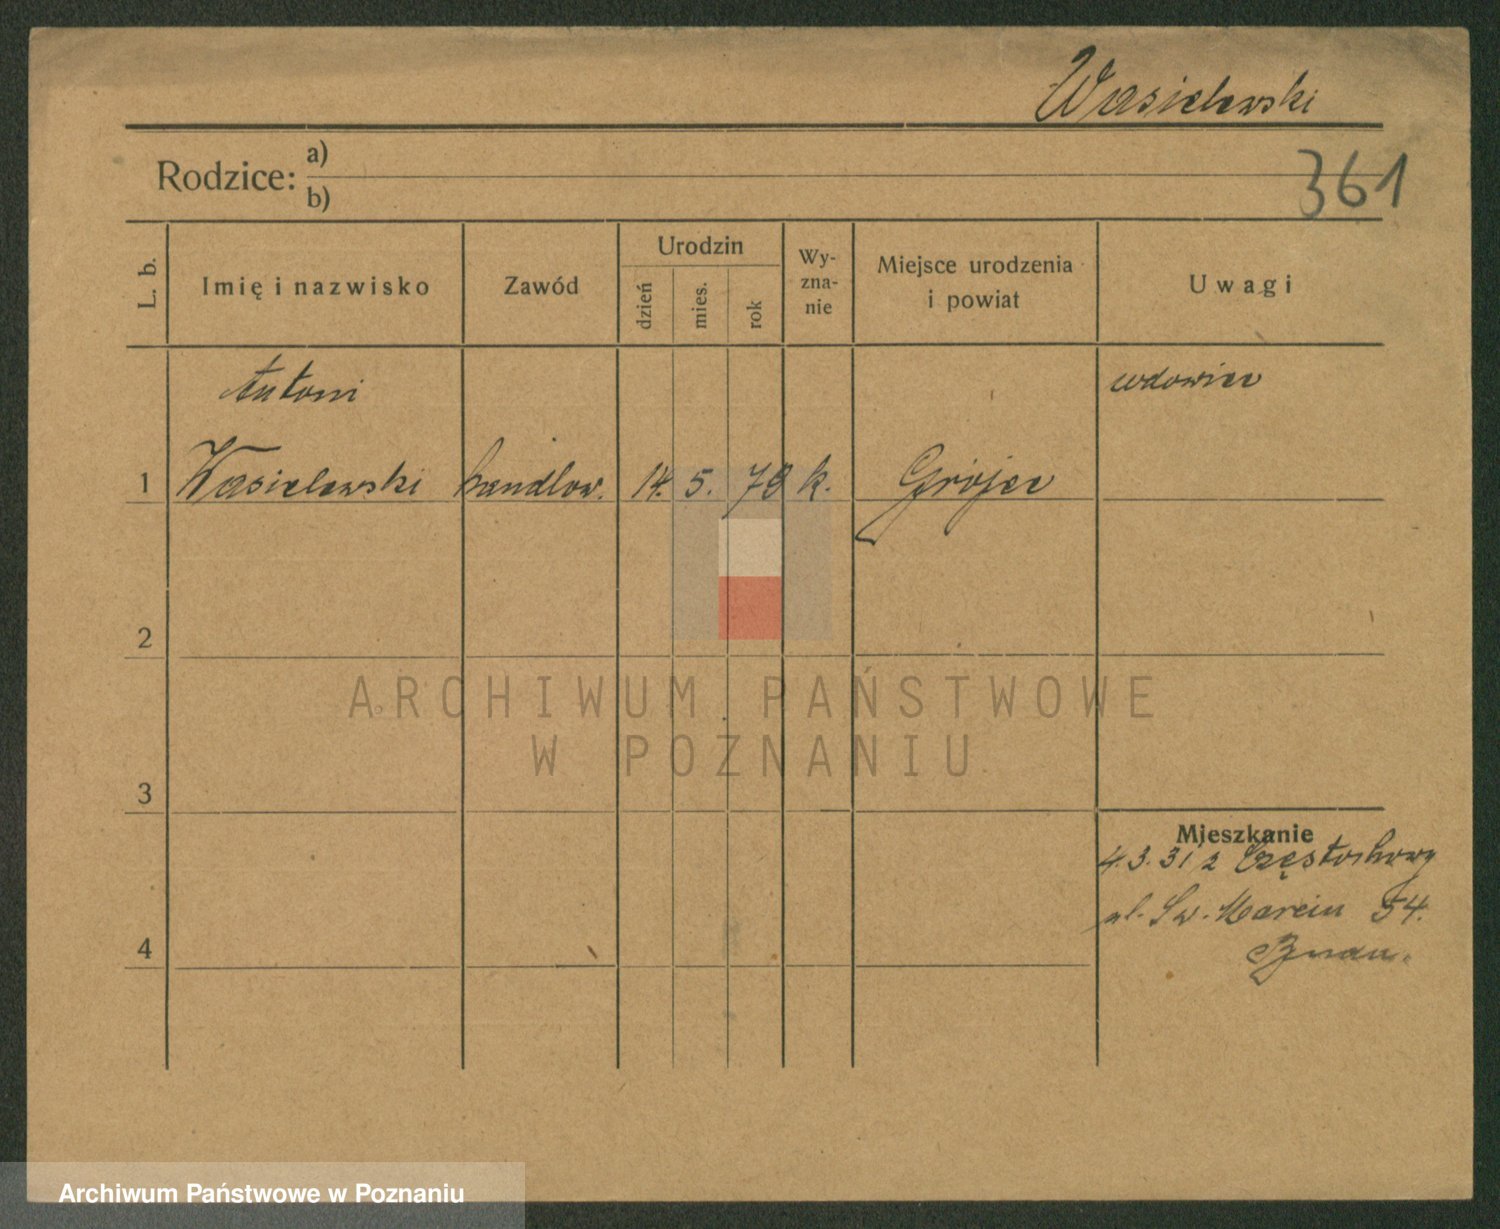 Wasielewski
361
Rodzice: a)
b)
L. b.
Imię i nazwisko
Zawód
Urodzin
dzień
mies.
rok
Wy-
zna-
nie
Miejsce urodzenia
i powiat
Uwagi
Antoni
wdowiec
1 Wasielewski handlow. 14. 5. 78 k. Grójec
2
ARCHIWUM PAŃSTWOWE
W POZNANIU
3
Mieszkanie
4.3.31 z Częstochowy
ul. Św. Marcin 54.
4
Archiwum Państwowe w Poznaniu